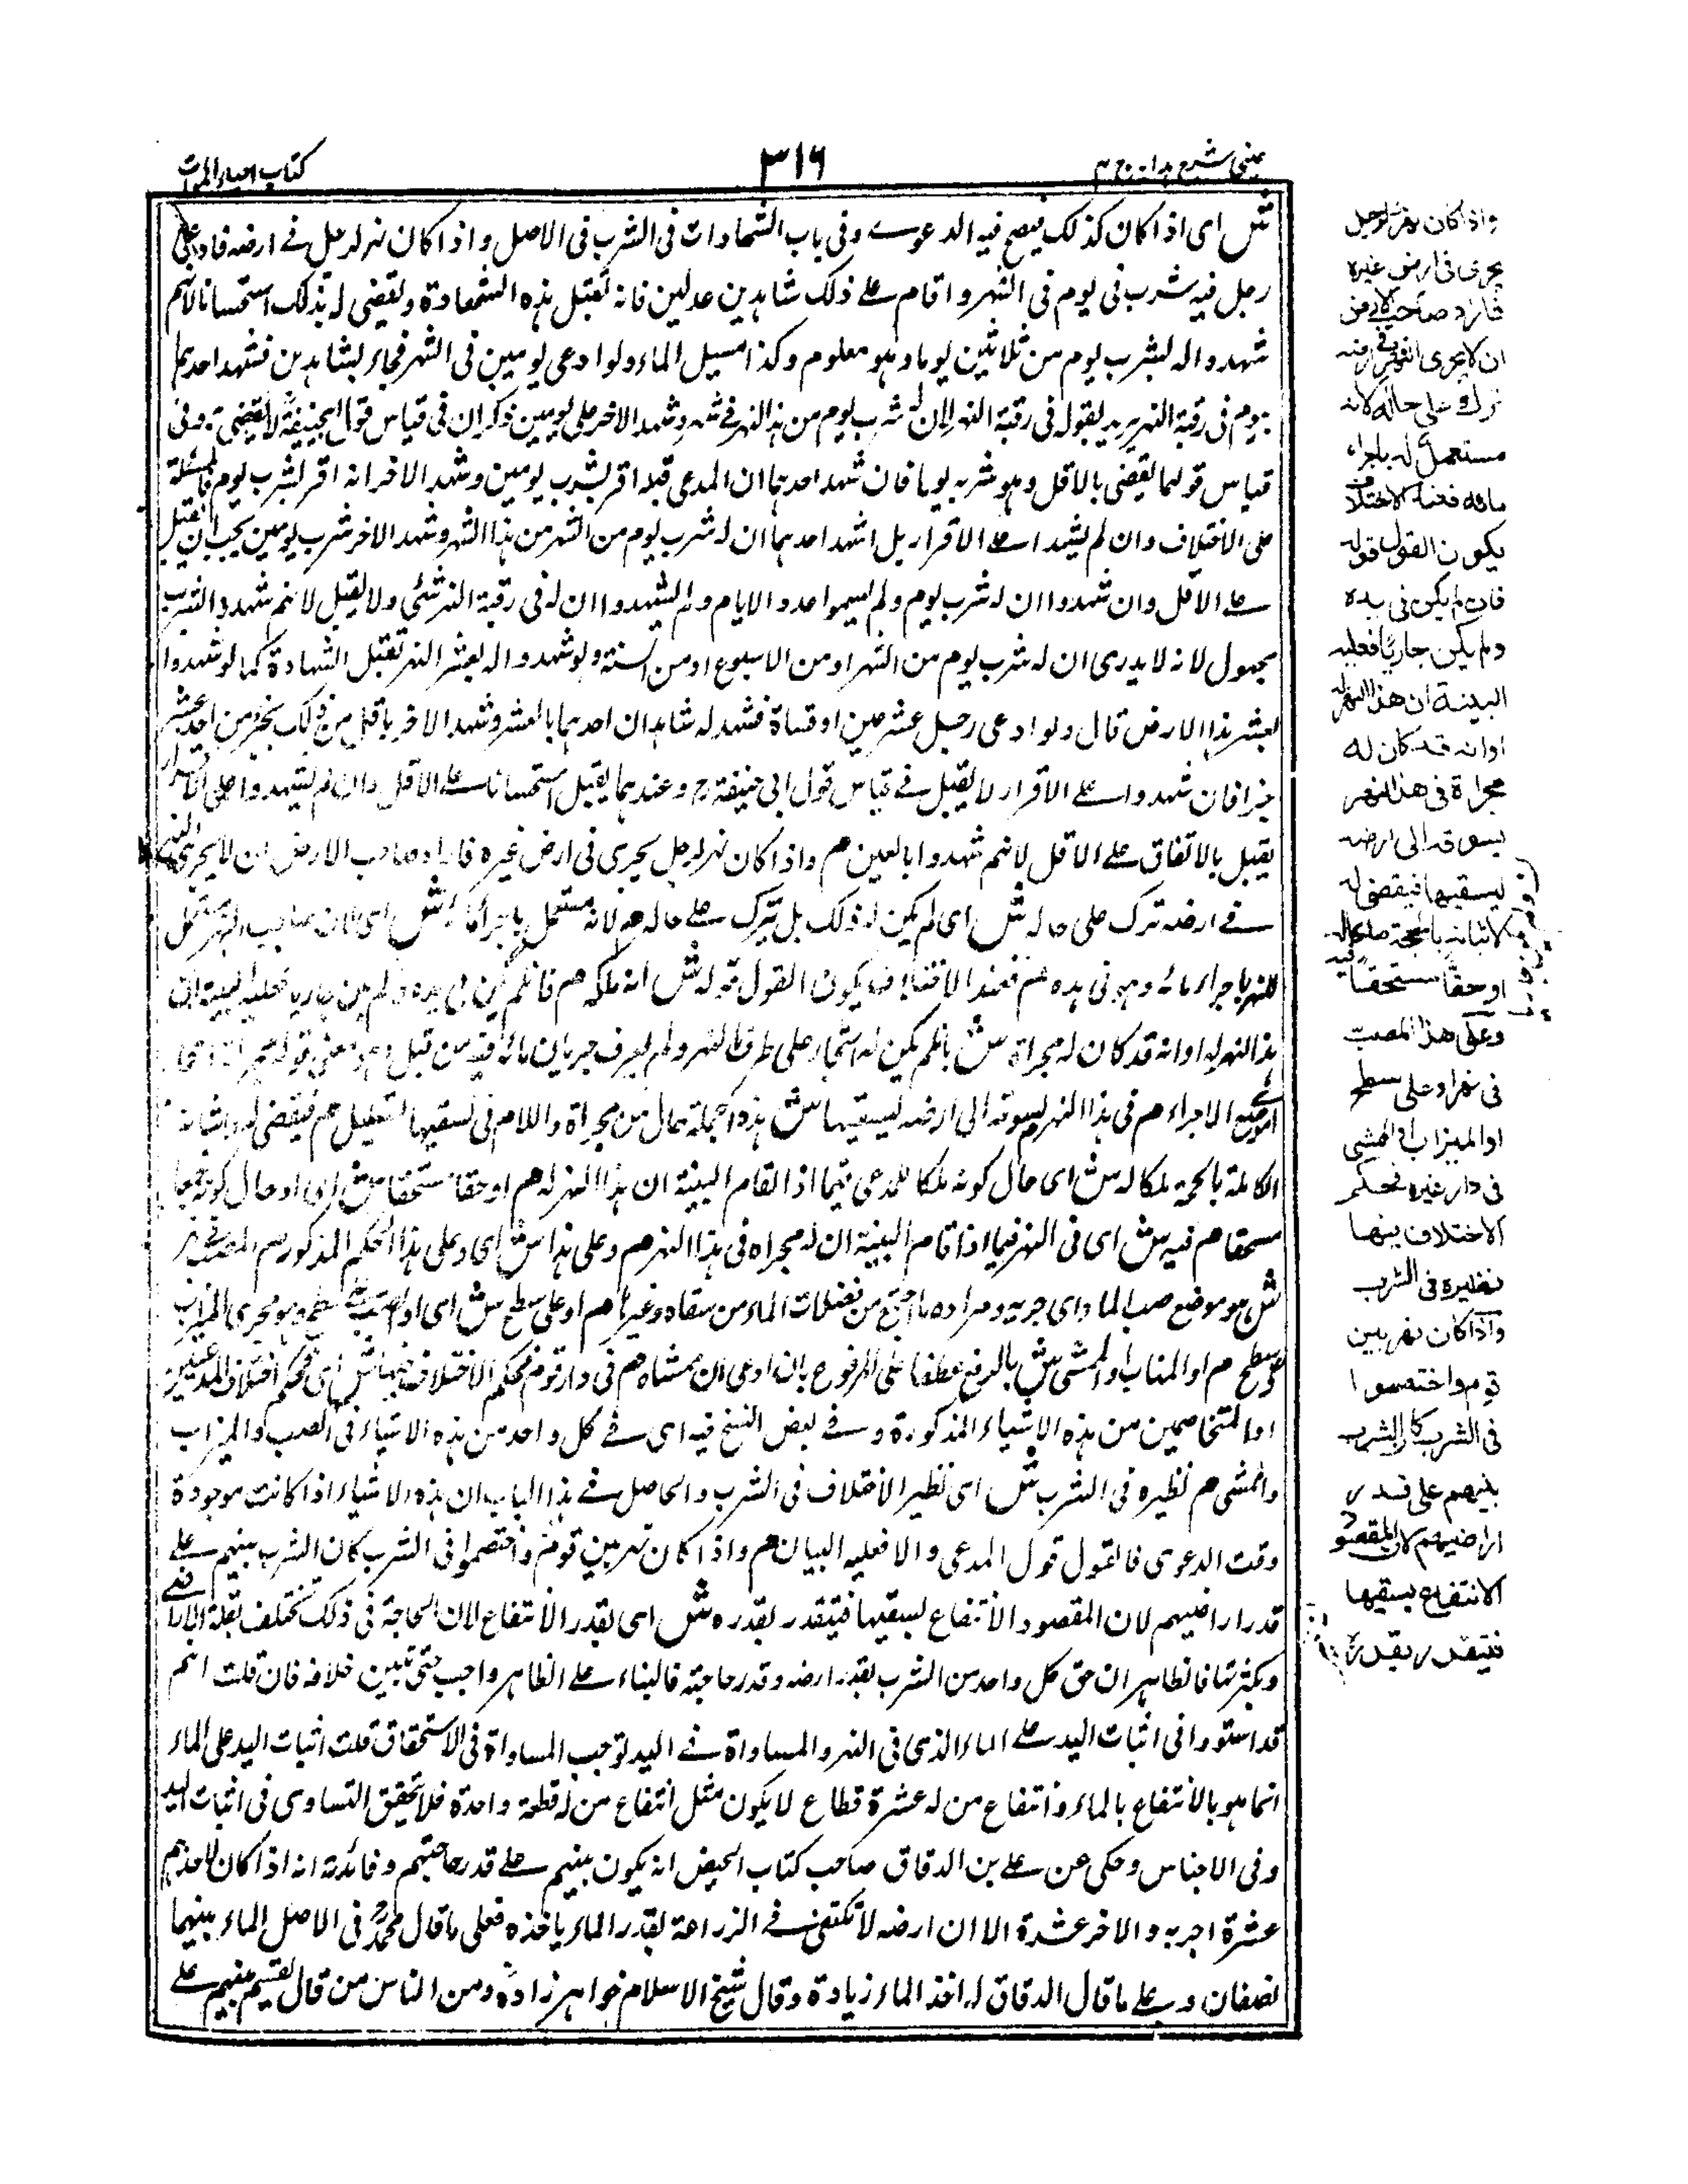 عینی شرح هدایه ج ٣
٣١٦
کتاب احیاء الموات
ش ای اذا کان کذلک فیصح فیه الدعوے وفی باب الشهادات فی الشرب فی الاصل واذا کان نهر لرجل فے ارضه فادعی
رجل فیه شرب فی یوم فی الشهر واقام علے ذلک شاهدین عدلین فانه تقبل هذه الشهادة ویقضی له بذلک استحسانا لانهم
شهدوا له بشرب یوم من ثلاثین یوما وهو معلوم وکذا مسیل الماء ولو ادعی یومین فی الشهر فجاء بشاهدین فشهد احدهما
بیوم فی رقبة النهر یرید بقوله فی رقبة النهر ان له شرب یوم من هذا النهر فے شهر وشهد الاخر علی یومین ذکر ان فی قیاس قول ابی حنیفة لا یقضی وفی
قیاس قولهما یقضی بالاقل وهو شربه یوما فان شهد احدهما ان المدعی قبله اقر بشرب یومین وشهد الاخر انه اقر بشرب یوم فالمسئلة
علی الاختلاف وان لم یشهدا علے الاقرار بل شهد احدهما ان له شرب یوم من الشهر من هذا النهر وشهد الاخر شرب یومین یجب ان تقبل
علے الاقل وان شهدوا ان له شرب یوم ولم یسموا عدد الایام ولم یشهدوا ان له فی رقبة النهر شئ ولا یقبل لانهم شهدوا بشرب
مجهول لانه لا یدری ان له شرب یوم من الشهر او من الاسبوع او من السنة ولو شهدوا له بعشر النهر تقبل الشهادة کما لو شهدوا
بعشر هذا الارض قال ولو ادعی رجل عشر عین او قناة فشهد له شاهدان احدهما بالعشر وشهد الاخر باقل من ذلک بجزء من احد عشر
جزا فان شهدوا علے الاقرار لا یقبل فے قیاس قول ابی حنیفة رح وعندهما یقبل استحسانا علے الاقل وان لم یشهدوا علی الاقرار
یقبل بالاتفاق علے الاقل لانهم شهدوا بالعین م واذا کان نهر لرجل یجری فی ارض غیره فاراد صاحب الارض ان لا یجری النهر
فے ارضه ترک علی حاله ش ای لم یکن له ذلک بل یترک علے حاله م لانه مستعمل له باجراء مائه ش ای لان صاحب النهر مستعمل
للنهر باجراء مائه وهو فی یده م فعند الاختلاف یکون القول قوله ش انه ملکه م فان لم یکن فی یده ولم یکن جاریا فعلیه البینة ان
هذا النهر له او انه قد کان له مجراه ش بان لم یکن له اشجار علی طرف النهر ولم یعرف جریان مائه فیه من قبل وهو معنی قوله مجراه ای
موضع الاجراء م فی هذا النهر یسوقه الی ارضه لیسقیها ش هذه الجملة حال من مجراه واللام فی لیسقیها للتعلیل م فیقضی له لاثباته
بالحجة ملکا له ش ای حال کونه ملکا للمدعی فیما اذا اقام البینة ان هذا النهر له م او حقا مستحقا ش ای او حال کونه حقا
مستحقا م فیه ش ای فی النهر فیما اذا قام البینة ان له مجراه فی هذا النهر م وعلی هذا ش ای وعلی هذا الحکم المذکور م المصب فے نهر
ش هو موضع صب الماء ای جریه ومراده ما اجتمع من فضلات الماء من سقاه وغیرها م او علی سطح ش ای او المصب علے سطح وهو مجری المیزاب
علی سطح م او المیزاب او الممشی ش بالرفع عطفا علی المرفوع بان ادعی ان ممشاه م فی دار قوم فحکم الاختلاف فیها ش ای فحکم اختلاف المدعیین
او المتخاصمین من هذه الاشیاء المذکورة وفے بعض النسخ فیه ای فے کل واحد من هذه الاشیاء فی المصب والمیزاب
والممشی م نظیره فی الشرب ش ای نظیر الاختلاف فی الشرب والحاصل فے هذا الباب ان هذه الاشیاء اذا کانت موجودة
وقت الدعوی فالقول قول المدعی والا فعلیه البیان م واذا کان نهر بین قوم واختصموا فی الشرب کان الشرب بینهم علے
قدر اراضیهم لان المقصود الانتفاع بسقیها فیتقدر بقدره ش ای بقدر الانتفاع لان الحاجة فی ذلک تختلف بقلة الاراضے
وبکثرتها فالظاهر ان حق کل واحد من الشرب بقدر ارضه وقدر حاجته فالبناء علے الظاهر واجب حتی تبین خلافه فان قلت انهم
قد استووا فی اثبات الید علے الماء الذی فی النهر والمساواة فے الید توجب المساواة فی الاستحقاق قلت اثبات الید علی الماء
انما هو بالانتفاع بالماء وانتفاع من له عشرة قطاع لا یکون مثل انتفاع من له قطعة واحدة فلا تحقق التساوی فی اثبات الید
وفی الاجناس وحکی عن علے بن الدقاق صاحب کتاب الحیض انه یکون بینهم علے قدر حاجتهم وفائدته انه اذا کان لاحدهم
عشرة اجربه والاخر عشرة الا ان ارضه لا تکتفی فے الزراعة بقدر الماء یاخذه فعلی ما قال محمد فی الاصل الماء بینهما
نصفان وعلی ما قال الدقاق له اخذ الماء زیادة وقال شیخ الاسلام خواهر زاده ومن الناس من قال یقسم بینهم علے
واذا کان نهر لرجل
یجری فی ارض غیره
فاراد صاحب الارض
ان لا یجری النهر فی ارضه
ترک علی حاله لانه
مستعمل له باجراء
مائه فعند الاختلاف
یکون القول قوله
فان لم یکن فی یده
ولم یکن جاریا فعلیه
البینة ان هذا النهر له
او انه قد کان له
مجراه فی هذا النهر
یسوقه الی ارضه
لیسقیها فیقضی له
لاثباته بالحجة ملکا له
او حقا مستحقا فیه
وعلی هذا المصب
فی نهر او علی سطح
او المیزاب او الممشی
فی دار غیره فحکم
الاختلاف فیها
نظیره فی الشرب
واذا کان نهر بین
قوم واختصموا
فی الشرب کان الشرب
بینهم علی قدر
اراضیهم لان المقصود
الانتفاع بسقیها
فیتقدر بقدره